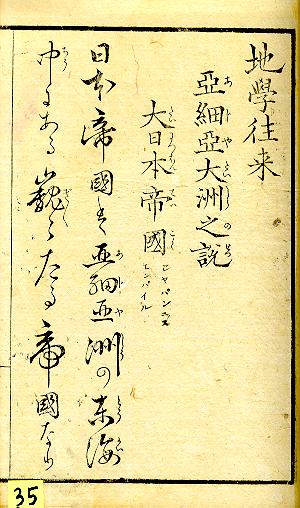 地學往来
亞細亞大洲之説
大日本帝國
エンパイル
日本帝國は亜細亜洲の東海
中にある巍々たる帝國なり
35